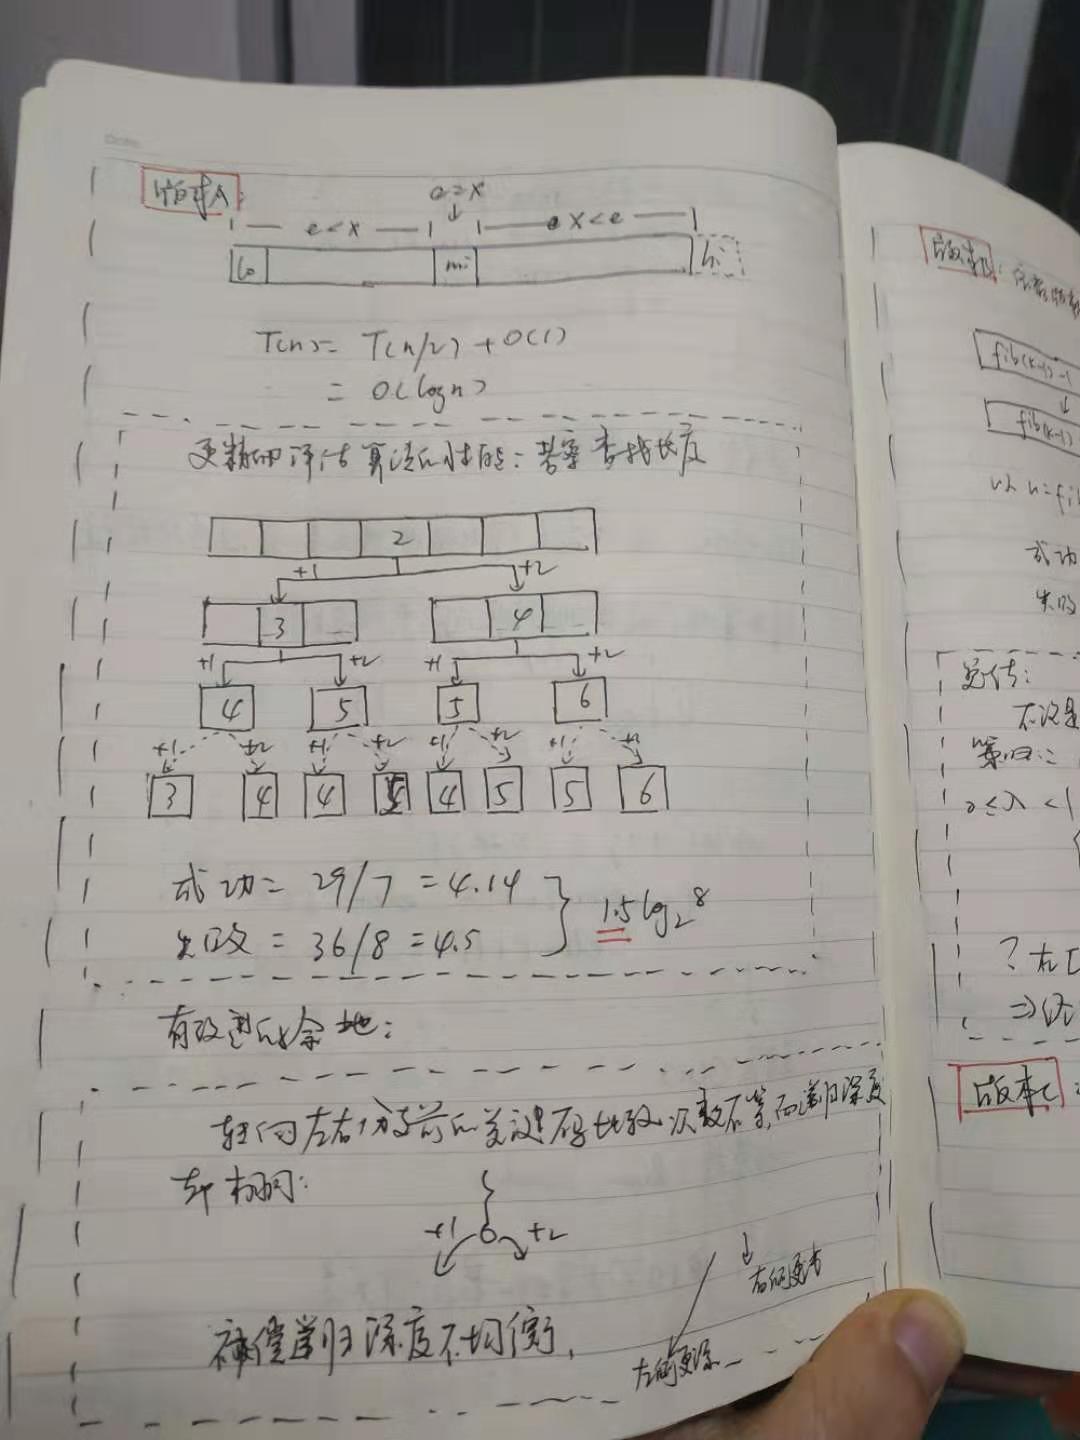 Date.
版本A:
e=x
e<x x<e
lo mi hi
T(n)= T(n/2) + O(1)
= O(logn)
更精细评估算法的性能: 考察查找长度
2
+1 +2
3 4
+1 +2 +1 +2
4 5 5 6
+1 +2 +1 +2 +1 +2 +1 +2
3 4 4 5 4 5 5 6
成功= 29/7 =4.14
失败 = 36/8 =4.5
1.5log₂8
有改进的余地:
转向左右分支前的关键码比较次数不等,而递归深度
却相同:
+1 +2
右侧更
补偿递归深度不均衡,
左侧更深
版本B:
fib(k-1)-1
fib(k-1)
以 n=fi
成功
失败
总结:
不论是
第
0≤λ<1
?
⇒
版本C: